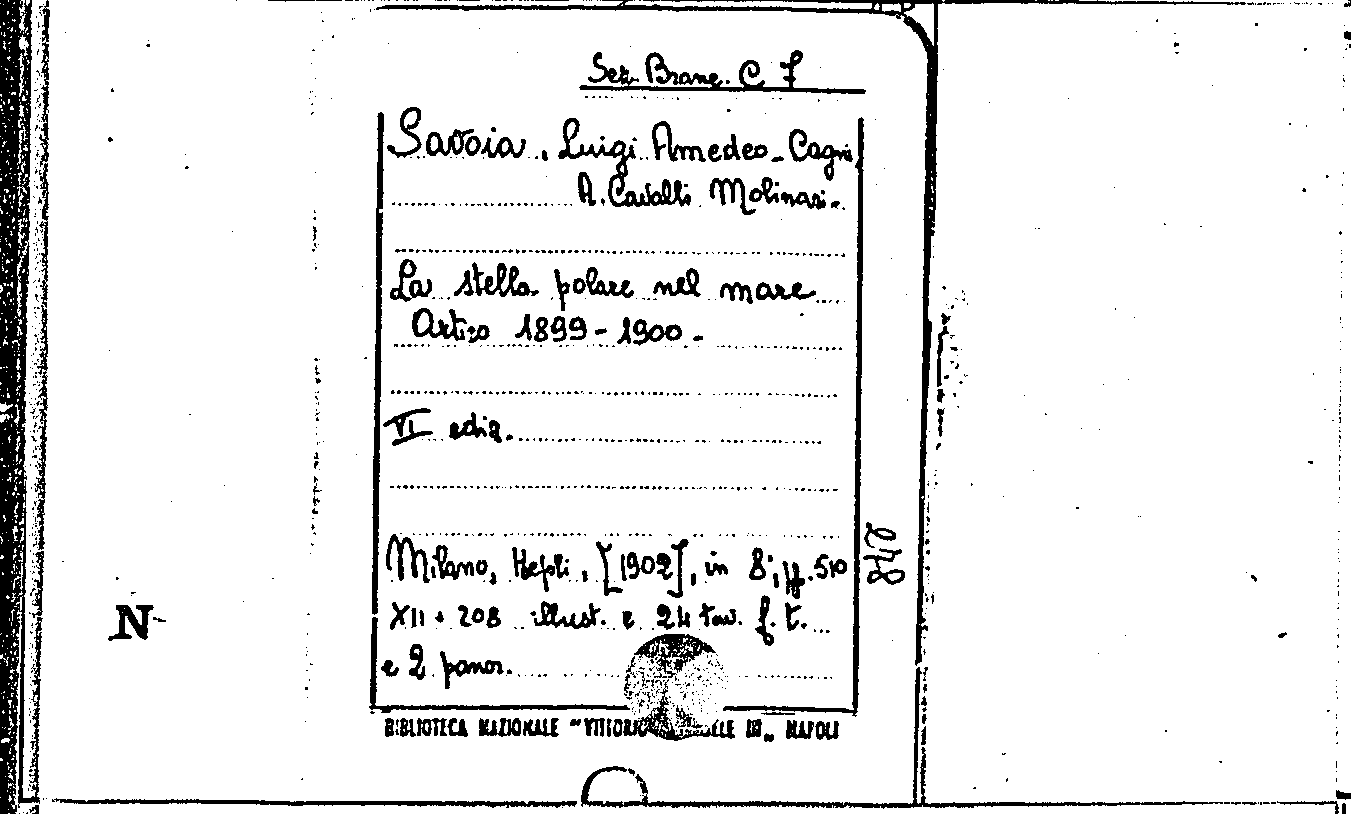 Sez. Branc. C 7
Savoia, Luigi Amedeo - Cagni
A. Cavalli Molinari.
La stella polare nel mare
Artico 1899-1900-
VI ediz.
Milano, Hepli, [1902], in 8°, pp. 510
XII + 208 illust. e 24 tav. f. t.
e 2 panor.
BIBLIOTECA NAZIONALE "VITTORIO ELE III„ NAPOLI
248
N